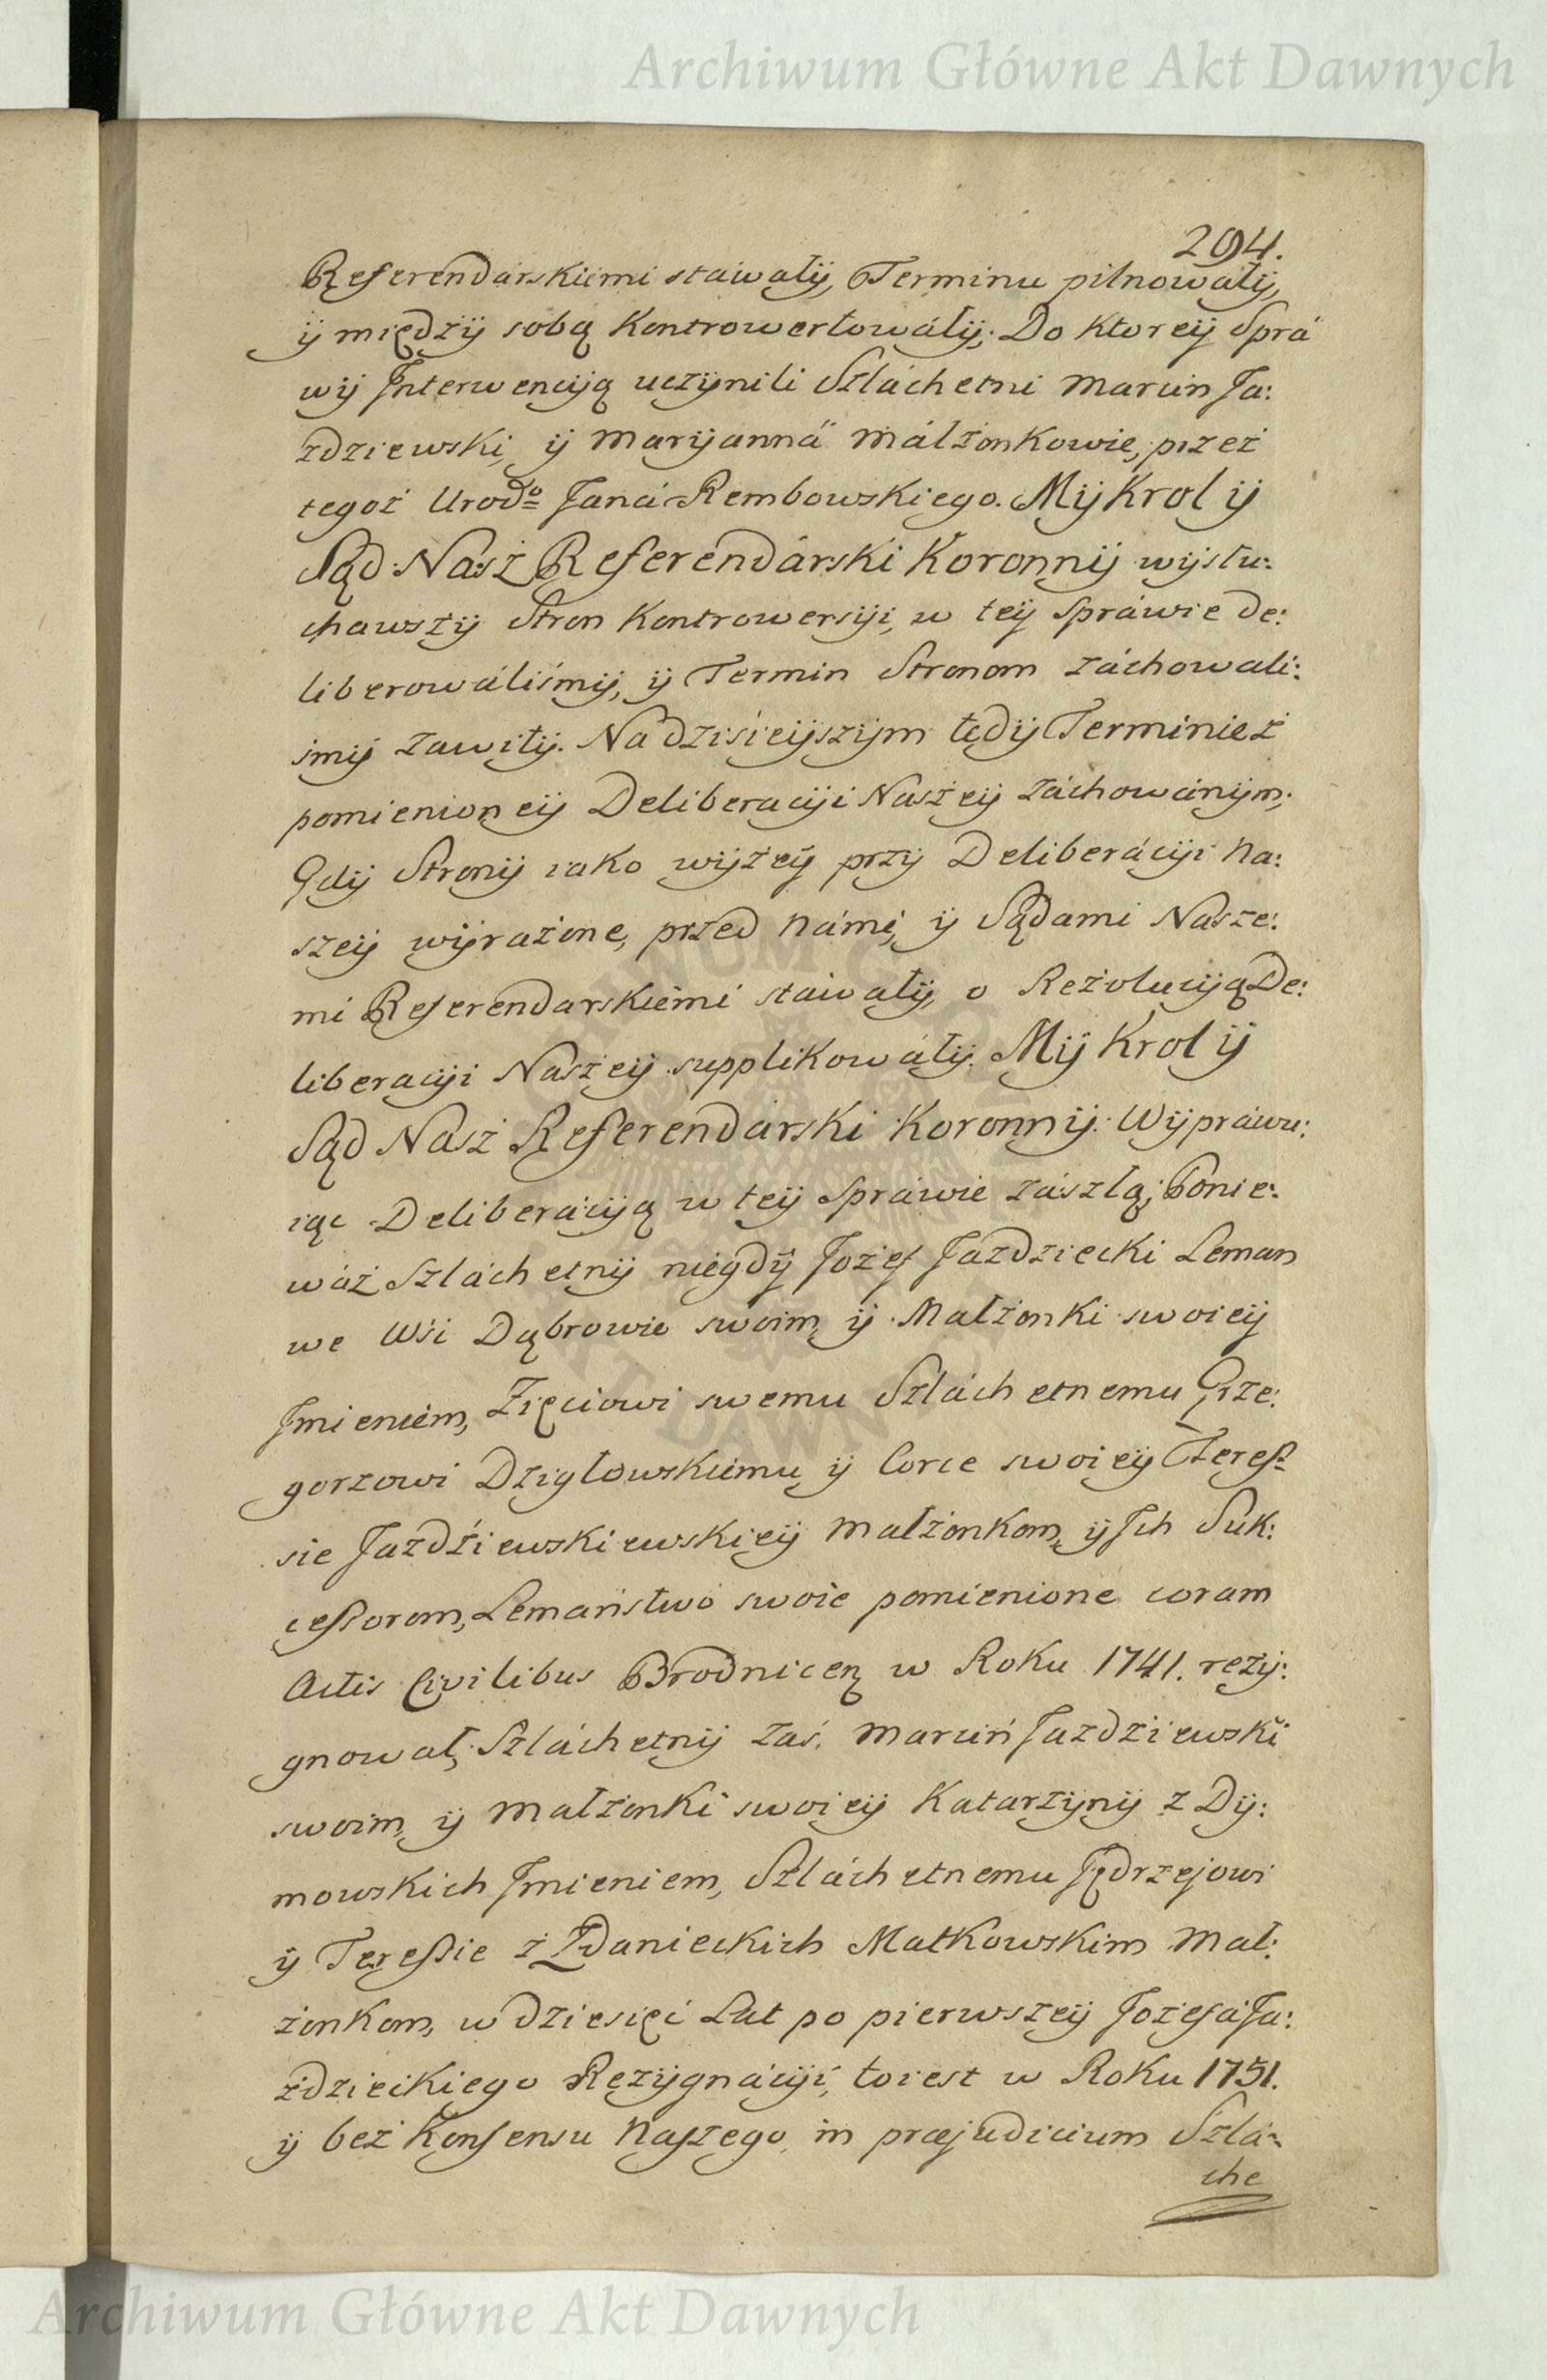 Archiwum Główne Akt Dawnych
294.
Referendarskiemi stawały, Terminu pilnowały,
ÿ między sobą Kontrowertowáły; Do Ktoreÿ Sprá
wÿ Jnterwencyą uczÿnili Szláchetni Marcin Ja:
zdziewski, ÿ Maryanná Máłżonkowie, przez
tegoż Urodº Janá Rembowskiego. Mÿ Krol ÿ
Sąd Nász Referendárski Koronnÿ wÿsłu:
chawszÿ Stron Kontrowersÿi, w teÿ Spráwie de:
liberowáliśmÿ, ÿ Termin Stronom záchowali:
śmÿ zawitÿ. Ná dzisieÿszÿm tedÿ Terminie z
pomienioneÿ Deliberacÿi Naszeÿ záchowánÿm;
Gdÿ Stronÿ iako wÿżeÿ przÿ Deliberácÿi Na:
szeÿ wÿrażone, przed Námi, ÿ Sądami Nasze:
mi Referendarskiemi stawałÿ, o Rezolucÿą De:
liberacÿi Naszeÿ supplikowáłÿ. Mÿ Krol ÿ
Sąd Nasz Referendárski Koronnÿ: Wÿpráwu:
iąc Deliberácÿą w teÿ Spráwie zászłą; Ponie:
wáż Szláchetnÿ niegdÿ Jozef Jazdziecki Leman
we Wsi Dąbrowie swoim, ÿ Małżonki swoieÿ
Jmieniem, Zięciowi swemu Szláchetnemu Grze:
gorzowi Dzigłowskiemu, ÿ Corce swoieÿ Teres=
sie Jazdźiewskiewskieÿ Małżonkom, ÿ Jch Suk:
cessorom, Lemaństwo swoie pomienione coram
Actis Civilibus Brodnicen w Roku 1741. rezÿ:
gnował; Szláchetnÿ zaś Marcin Jazdziewski
swoim, ÿ Małżonki swoieÿ Katarzÿnÿ z Dÿ:
mowskich Jmieniem, Szláchetnemu Jędrzejowi
ÿ Teressie z Zdanieckich Małkowskim Mał:
żonkom, w dziesięć Lat po pierwszeÿ Jozefa Ja:
zdzieckiego Rezÿgnácÿi, to iest w Roku 1751.
ÿ bez Konsensu Naszego, in præjudicium Szlá=
che
Archiwum Główne Akt Dawnych